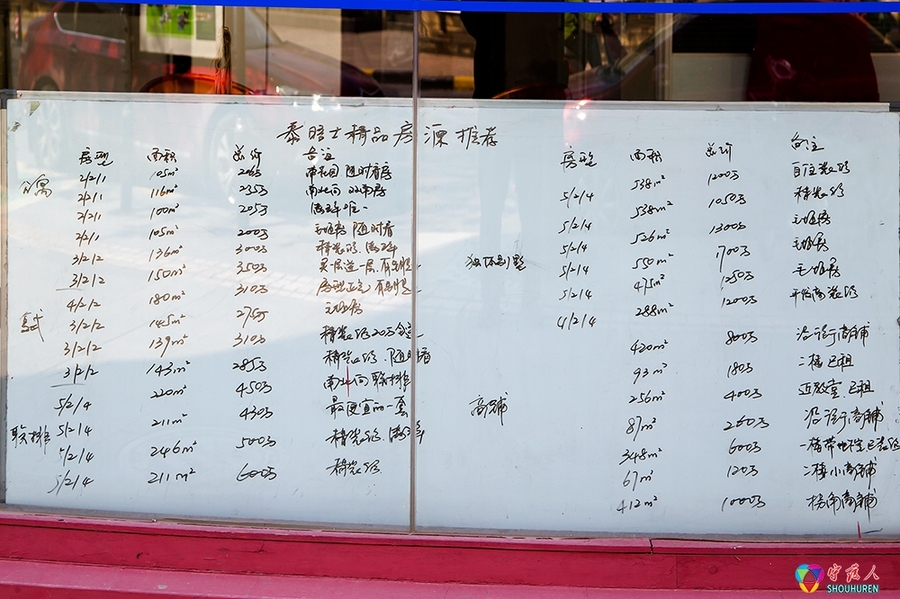 泰晤士精品房源推荐
房型 面积 总价 备注
公寓 2/2/1 105m² 226万 南花园 随时看房
2/2/1 116m² 235万
2/2/1 100m² 205万 满五年唯一
2/2/1 105m² 200万 毛坯房 随时看
3/2/2 136m² 300万 精装修 满五年
3/2/2 150m² 350万 买一层送一层,有车库
4/2/2 180m² 310万 房型正气,有车库
复式 3/2/2 145m² 275万 毛坯房
3/2/2 139m² 310万 精装修20万
3/2/2 143m² 285万 精装修,随时看
5/2/4 220m² 450万 南北向联排
联排 5/2/4 211m² 430万 最便宜的一套
5/2/4 246m² 500万 精装修,满五年
5/2/4 211m² 600万 精装修
房型 面积 总价 备注
5/2/4 538m² 1200万 自住装修
5/2/4 538m² 1050万 精装修
5/2/4 526m² 1300万 毛坯房
独体别墅 5/2/4 550m² 1700万 毛坯房
5/2/4 475m² 1250万 毛坯房
4/2/4 288m² 1200万 装修
420m² 800万 沿街商铺
93m² 180万 二楼已租
商铺 256m² 400万 近教堂,已租
87m² 260万 沿街商铺
348m² 600万 一楼带地室已装修
67m² 120万 二楼小商铺
412m² 1000万 拐角商铺
守候人
SHOUHUREN